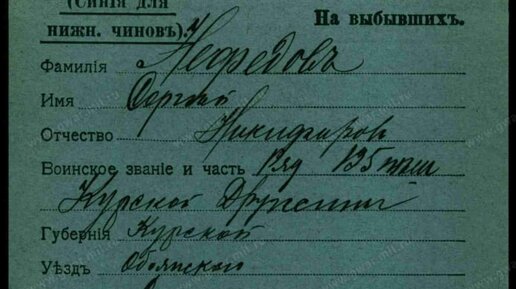 (Синія для
нижн. чиновъ).
На выбывшихъ.
Фамилія Нефедовъ
Имя Сергей
Отчество Никифоров
Воинское званіе и часть Ряд 135 пеш
Курской Дружины
Губернія Курской
Уѣздъ Обоянского